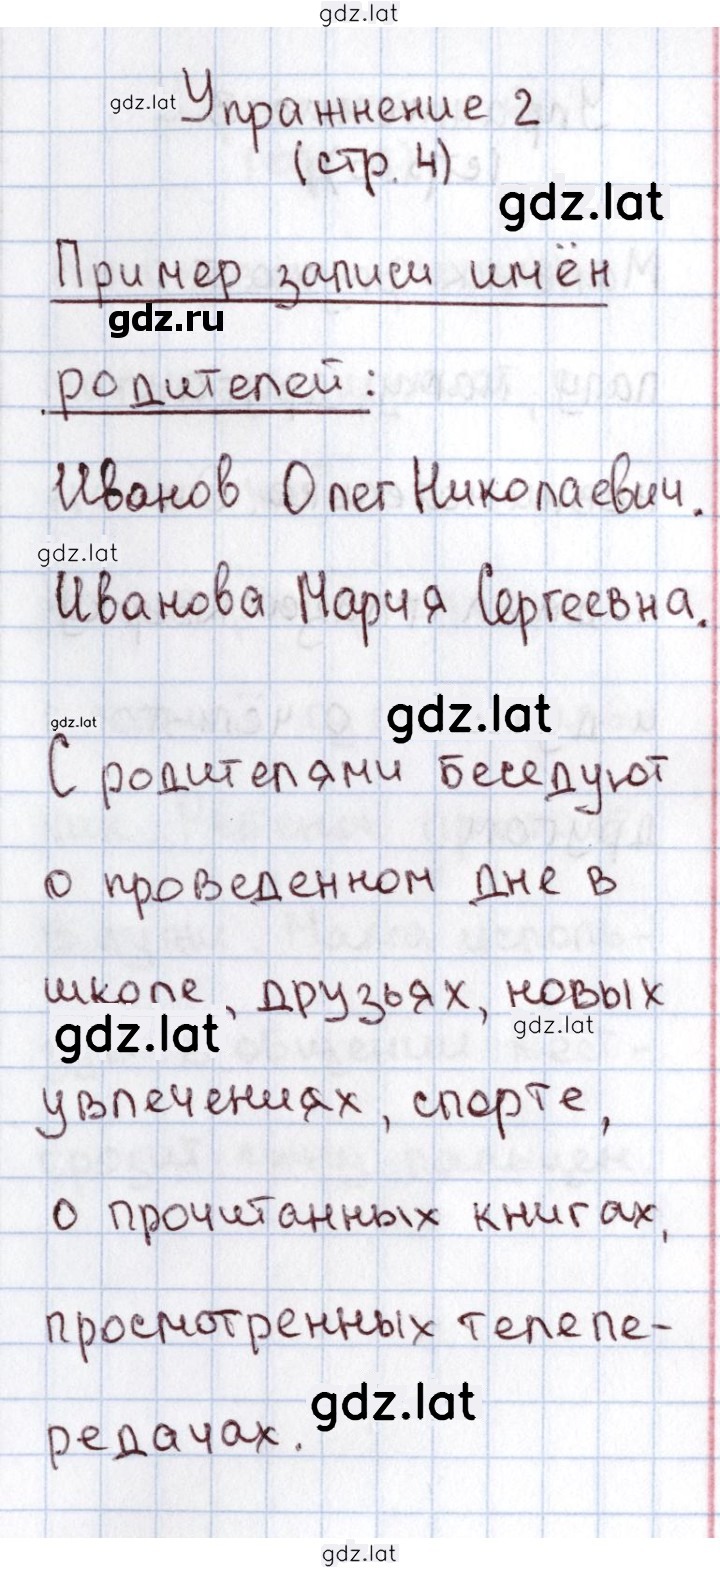 gdz.lat
gdz.lat Упражнение 2
(стр. 4)
gdz.lat
Пример записи имён
gdz.ru
родителей:
Иванов Олег Николаевич.
gdz.lat
Иванова Мария Сергеевна.
gdz.lat
gdz.lat
С родителями беседуют
о проведенном дне в
школе, друзьях, новых
gdz.lat gdz.lat
увлечениях, спорте,
о прочитанных книгах,
просмотренных телепе-
gdz.lat
редачах.
gdz.lat